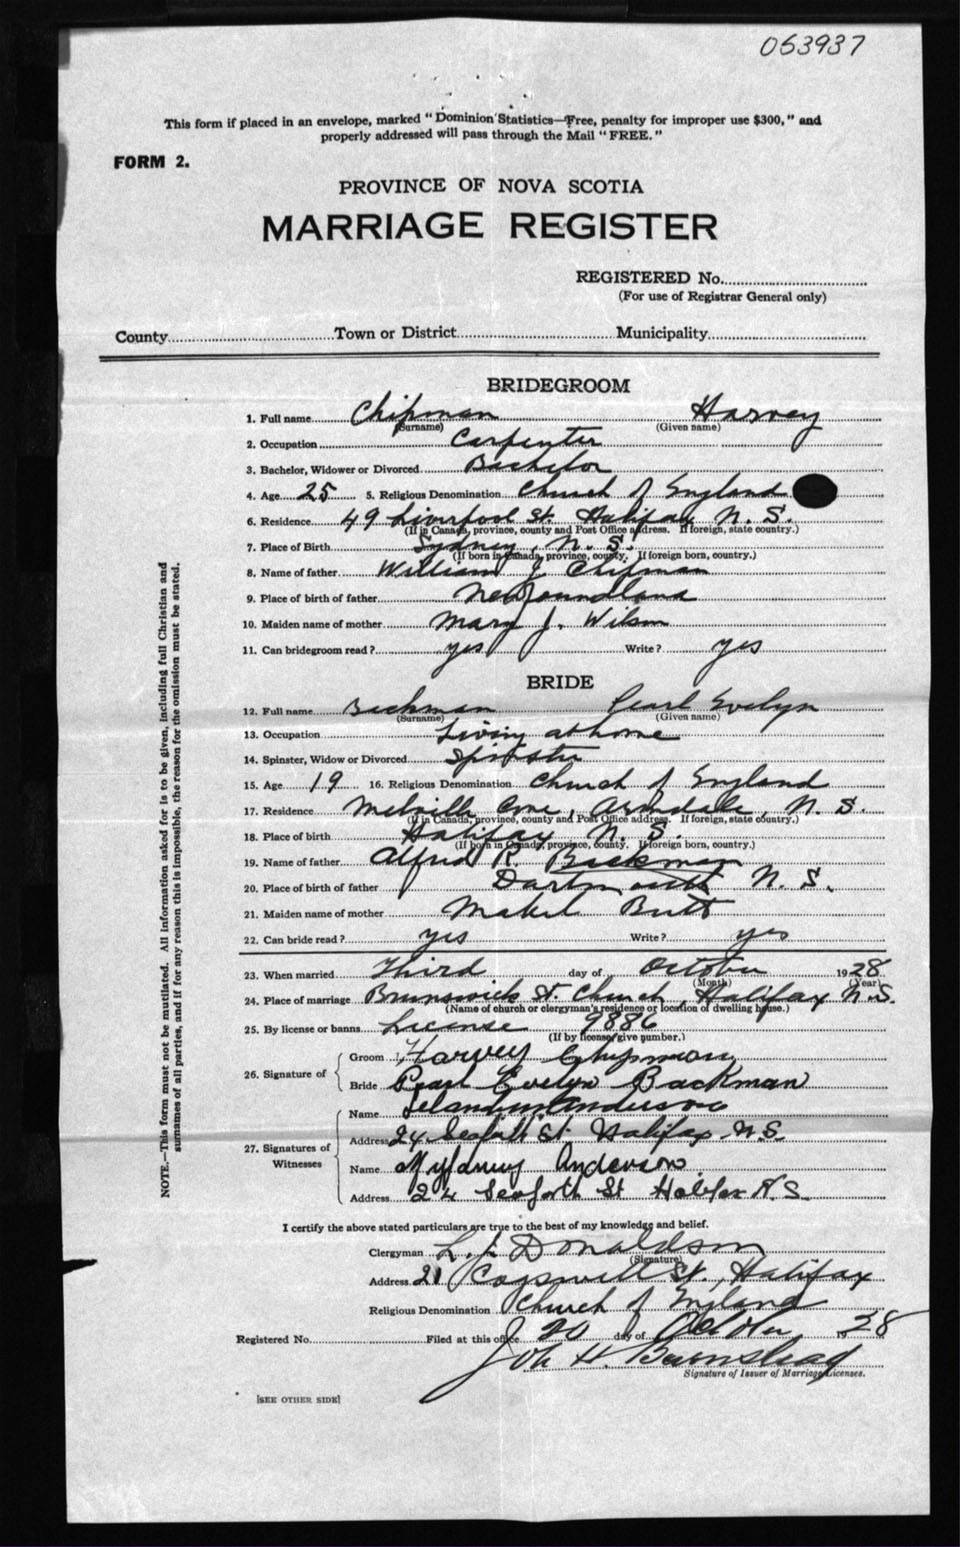 053937
This form if placed in an envelope, marked "Dominion Statistics—Free, penalty for improper use $300," and
properly addressed will pass through the Mail "FREE."
FORM 2.
PROVINCE OF NOVA SCOTIA
MARRIAGE REGISTER
REGISTERED No.
(For use of Registrar General only)
County Town or District Municipality
BRIDEGROOM
1. Full name Chipman Harvey
(Surname) (Given name)
2. Occupation Carpenter
3. Bachelor, Widower or Divorced Bachelor
4. Age 25 5. Religious Denomination Church of England
6. Residence 49 Liverpool St. Halifax N. S.
(If in Canada, province, county and Post Office address. If foreign, state country.)
7. Place of Birth Sydney, N. S.
(If born in Canada, province, county. If foreign born, country.)
8. Name of father William J Chipman
9. Place of birth of father Newfoundland
10. Maiden name of mother Mary J. Wilson
11. Can bridegroom read? yes Write? yes
BRIDE
12. Full name Backman Pearl Evelyn
(Surname) (Given name)
13. Occupation Living at home
14. Spinster, Widow or Divorced Spinster
15. Age 19 16. Religious Denomination Church of England
17. Residence Melville Cove, Armdale, N. S.
(If in Canada, province, county and Post Office address. If foreign, state country.)
18. Place of birth Halifax N. S.
(If born in Canada, province, county. If foreign born, country.)
19. Name of father Alfred R. Backman
20. Place of birth of father Dartmouth N. S.
21. Maiden name of mother Mabel Butt
22. Can bride read? yes Write? yes
23. When married Third day of October 1928
(Month) (Year)
24. Place of marriage Brunswick St. Church, Halifax N.S.
(Name of church or clergyman's residence or location of dwelling house.)
25. By license or banns License 9886
(If by license give number.)
26. Signature of Groom Harvey Chipman
Bride Pearl Evelyn Backman
27. Signatures of Witnesses Name Anderson
Address 24 Seaforth St Halifax N.S.
Name Myfanwy Anderson
Address 24 Seaforth St Halifax N.S.
I certify the above stated particulars are true to the best of my knowledge and belief.
Clergyman L. J. Donaldson
(Signature)
Address 21 Cogswell St., Halifax
Religious Denomination Church of England
Registered No. Filed at this office 20 day of October 1928
H. Barnstead
Signature of Issuer of Marriage Licenses.
[SEE OTHER SIDE]
NOTE.—This form must not be mutilated. All information asked for is to be given, including full Christian and
surnames of all parties, and if for any reason this is impossible, the reason for the omission must be stated.